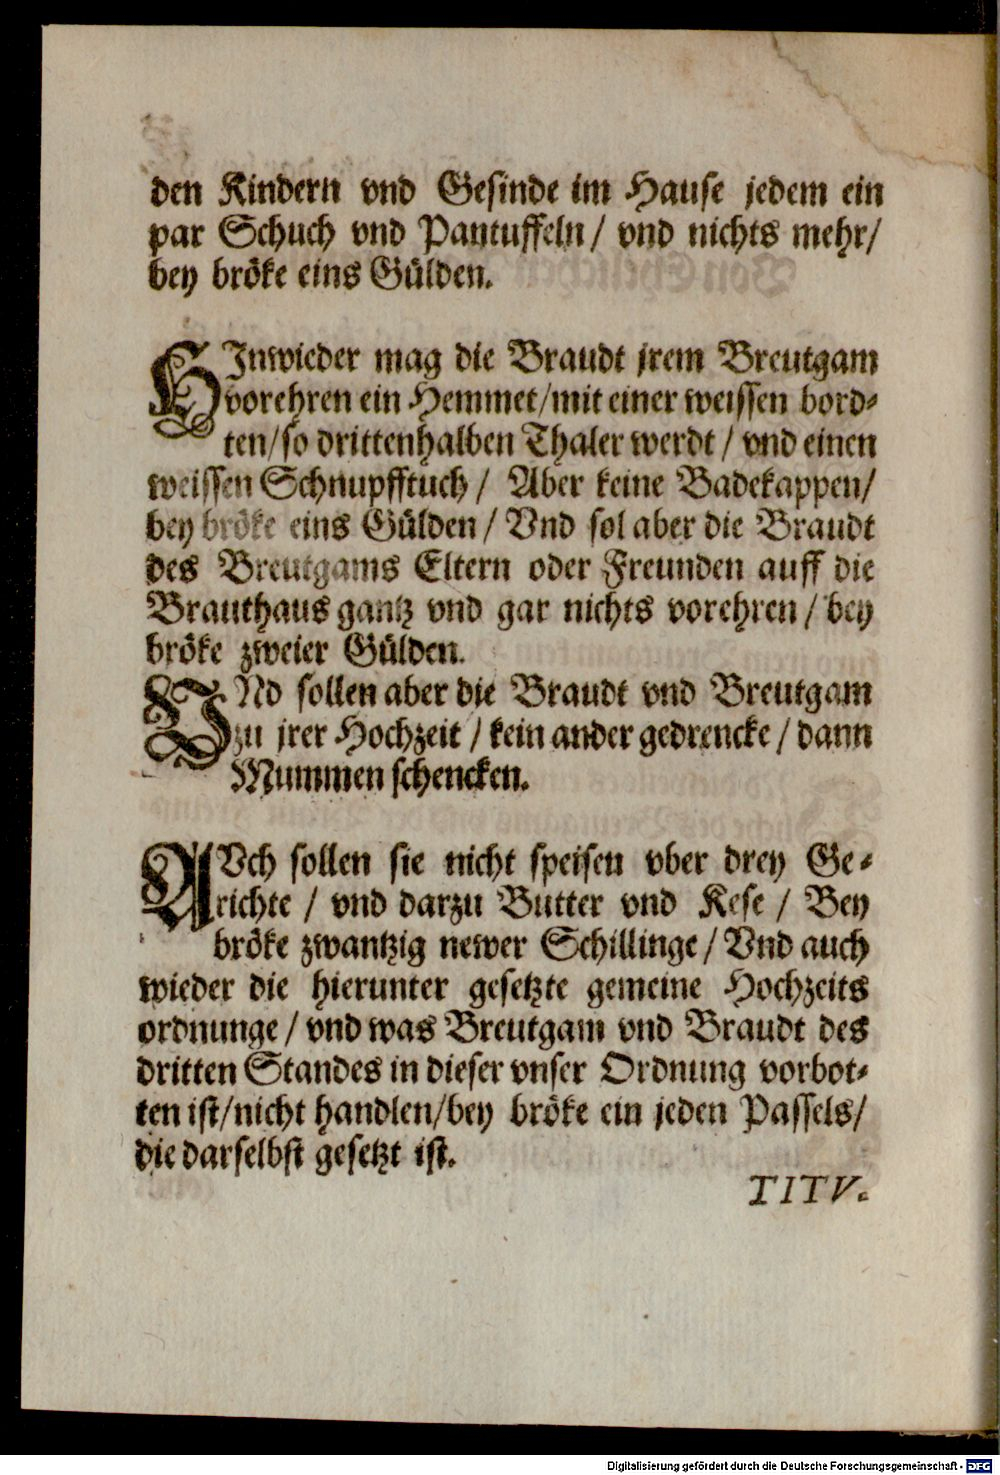 den Kindern vnd Gesinde im Hause jedem ein
par Schuch vnd Pantuffeln / vnd nichts mehr/
bey bröke eins Gülden.
HInwieder mag die Braudt jrem Breutgam
vorehren ein Hemmet/mit einer weissen bord⸗
ten/so drittenhalben Thaler werdt / vnd einen
weissen Schnupfftuch / Aber keine Badekappen/
bey bröke eins Gülden / Vnd sol aber die Braudt
des Breutgams Eltern oder Freunden auff die
Brauthaus gantz vnd gar nichts vorehren / bey
bröke zweier Gülden.
VNd sollen aber die Braudt vnd Breutgam
zu jrer Hochzeit / kein ander gedrencke / dann
Mummen schencken.
AVch sollen sie nicht speisen vber drey Ge⸗
richte / vnd darzu Butter vnd Kese / Bey
bröke zwantzig newer Schillinge / Vnd auch
wieder die hierunter gesetzte gemeine Hochzeits
ordnunge / vnd was Breutgam vnd Braudt des
dritten Standes in dieser vnser Ordnung vorbot⸗
ten ist/nicht handlen/bey bröke ein jeden Passels/
die darselbst gesetzt ist.
TITV.
Digitalisierung gefördert durch die Deutsche Forschungsgemeinschaft - DFG